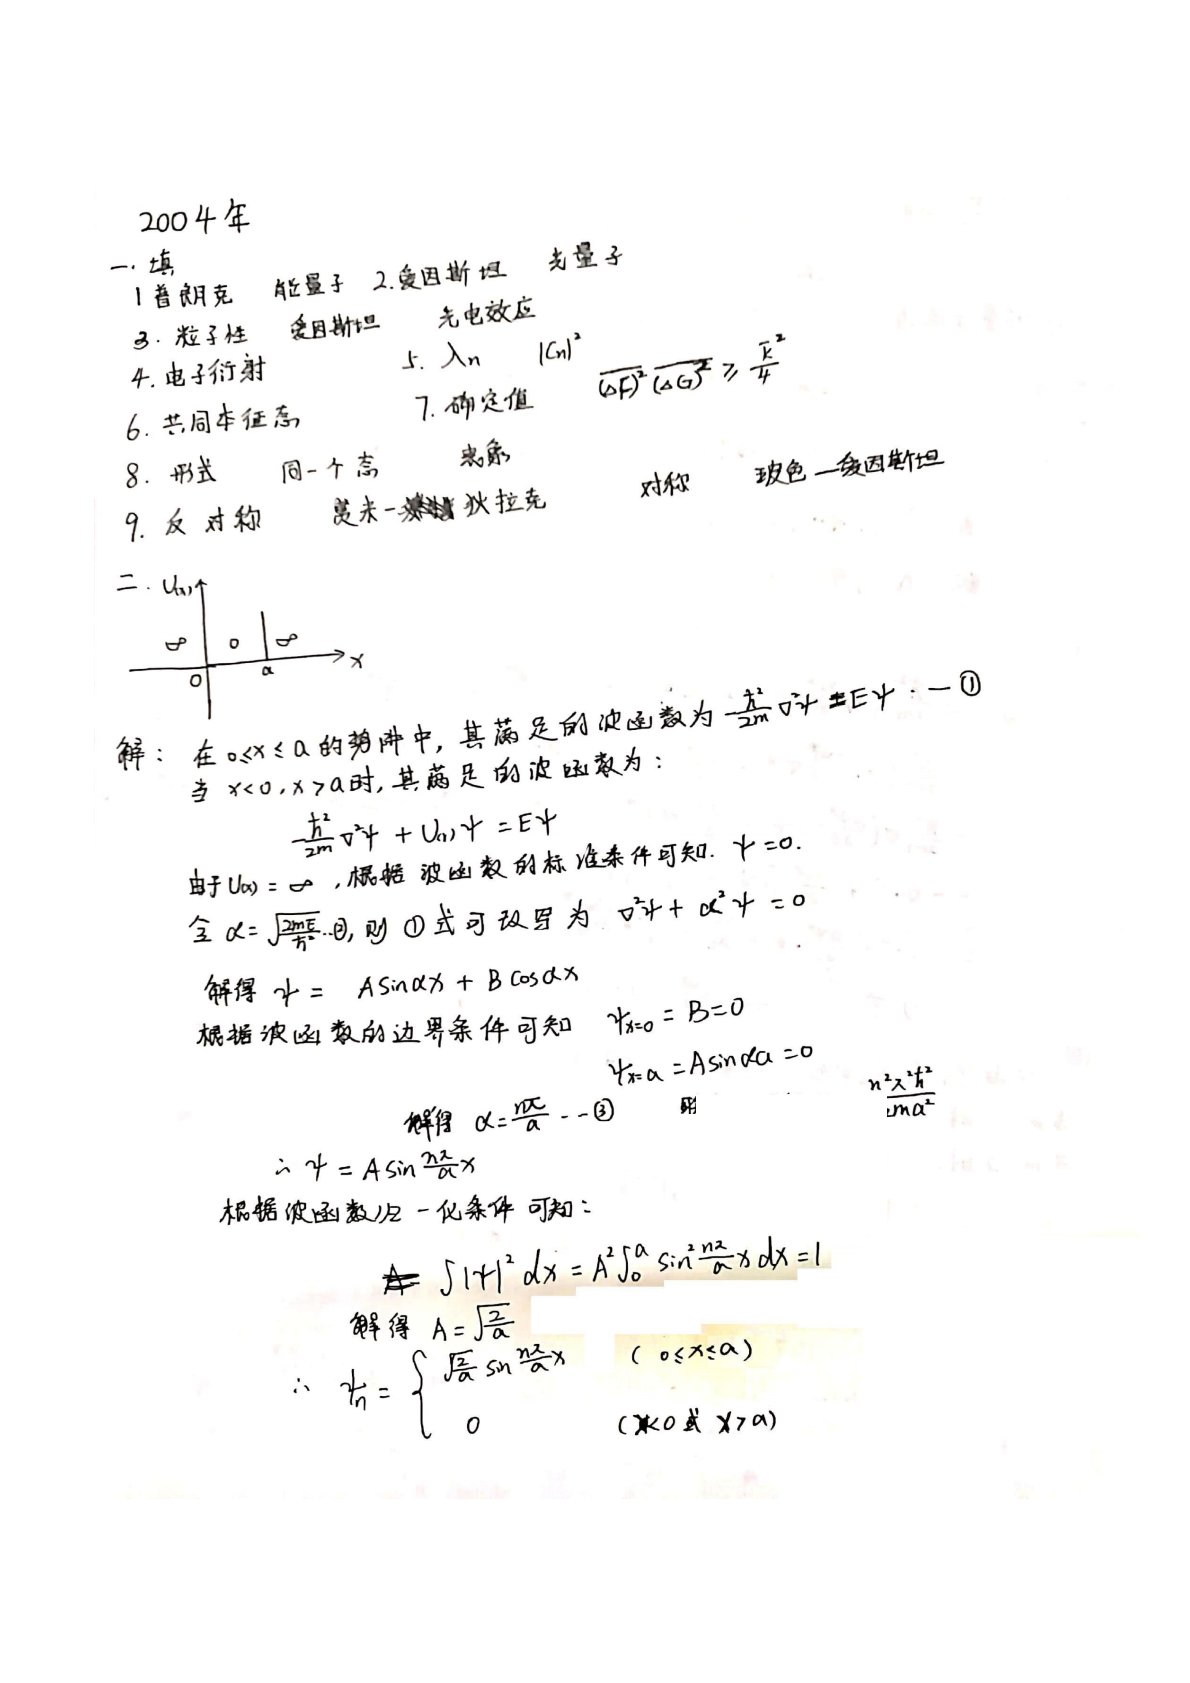 2004年
一.填
1 普朗克 能量子 2.爱因斯坦 光量子
3. 粒子性 爱因斯坦 光电效应
4. 电子衍射 5. λn |Cn|²
6. 共同本征态 7. 确定值 \overline{(ΔF)²} \overline{(ΔG)²} ≥ \overline{k}²/4
8. 形式 同一个态 表象
9. 反对称 费米-狄拉克 对称 玻色-爱因斯坦
二. U(x)
∞ 0 ∞
0 a x
解: 在 0≤x≤a 的势阱中, 其满足的波函数为 -ħ²/2m ∇²ψ = Eψ ·—①
当 x<0, x>a时, 其满足的波函数为:
-ħ²/2m ∇²ψ + U(x)ψ = Eψ
由于U(x) = ∞, 根据波函数的标准条件可知. ψ=0.
令 α=√(2mE/ħ²)…②, 则 ①式可改写为 ∇²ψ + α²ψ = 0
解得 ψ = Asinαx + Bcosαx
根据波函数的边界条件可知 ψx=0 = B=0
ψx=a = Asinαa = 0
解得 α= nπ/a --③ n²π²ħ²/2ma²
∴ ψ = A sin nπ/a x
根据波函数归一化条件可知:
∫|ψ|²dx = A²∫₀ᵃ sin² nπ/a x dx = 1
解得 A = √(2/a)
∴ ψn = { √(2/a) sin nπ/a x (0≤x≤a)
0 (x<0 或 x>a)